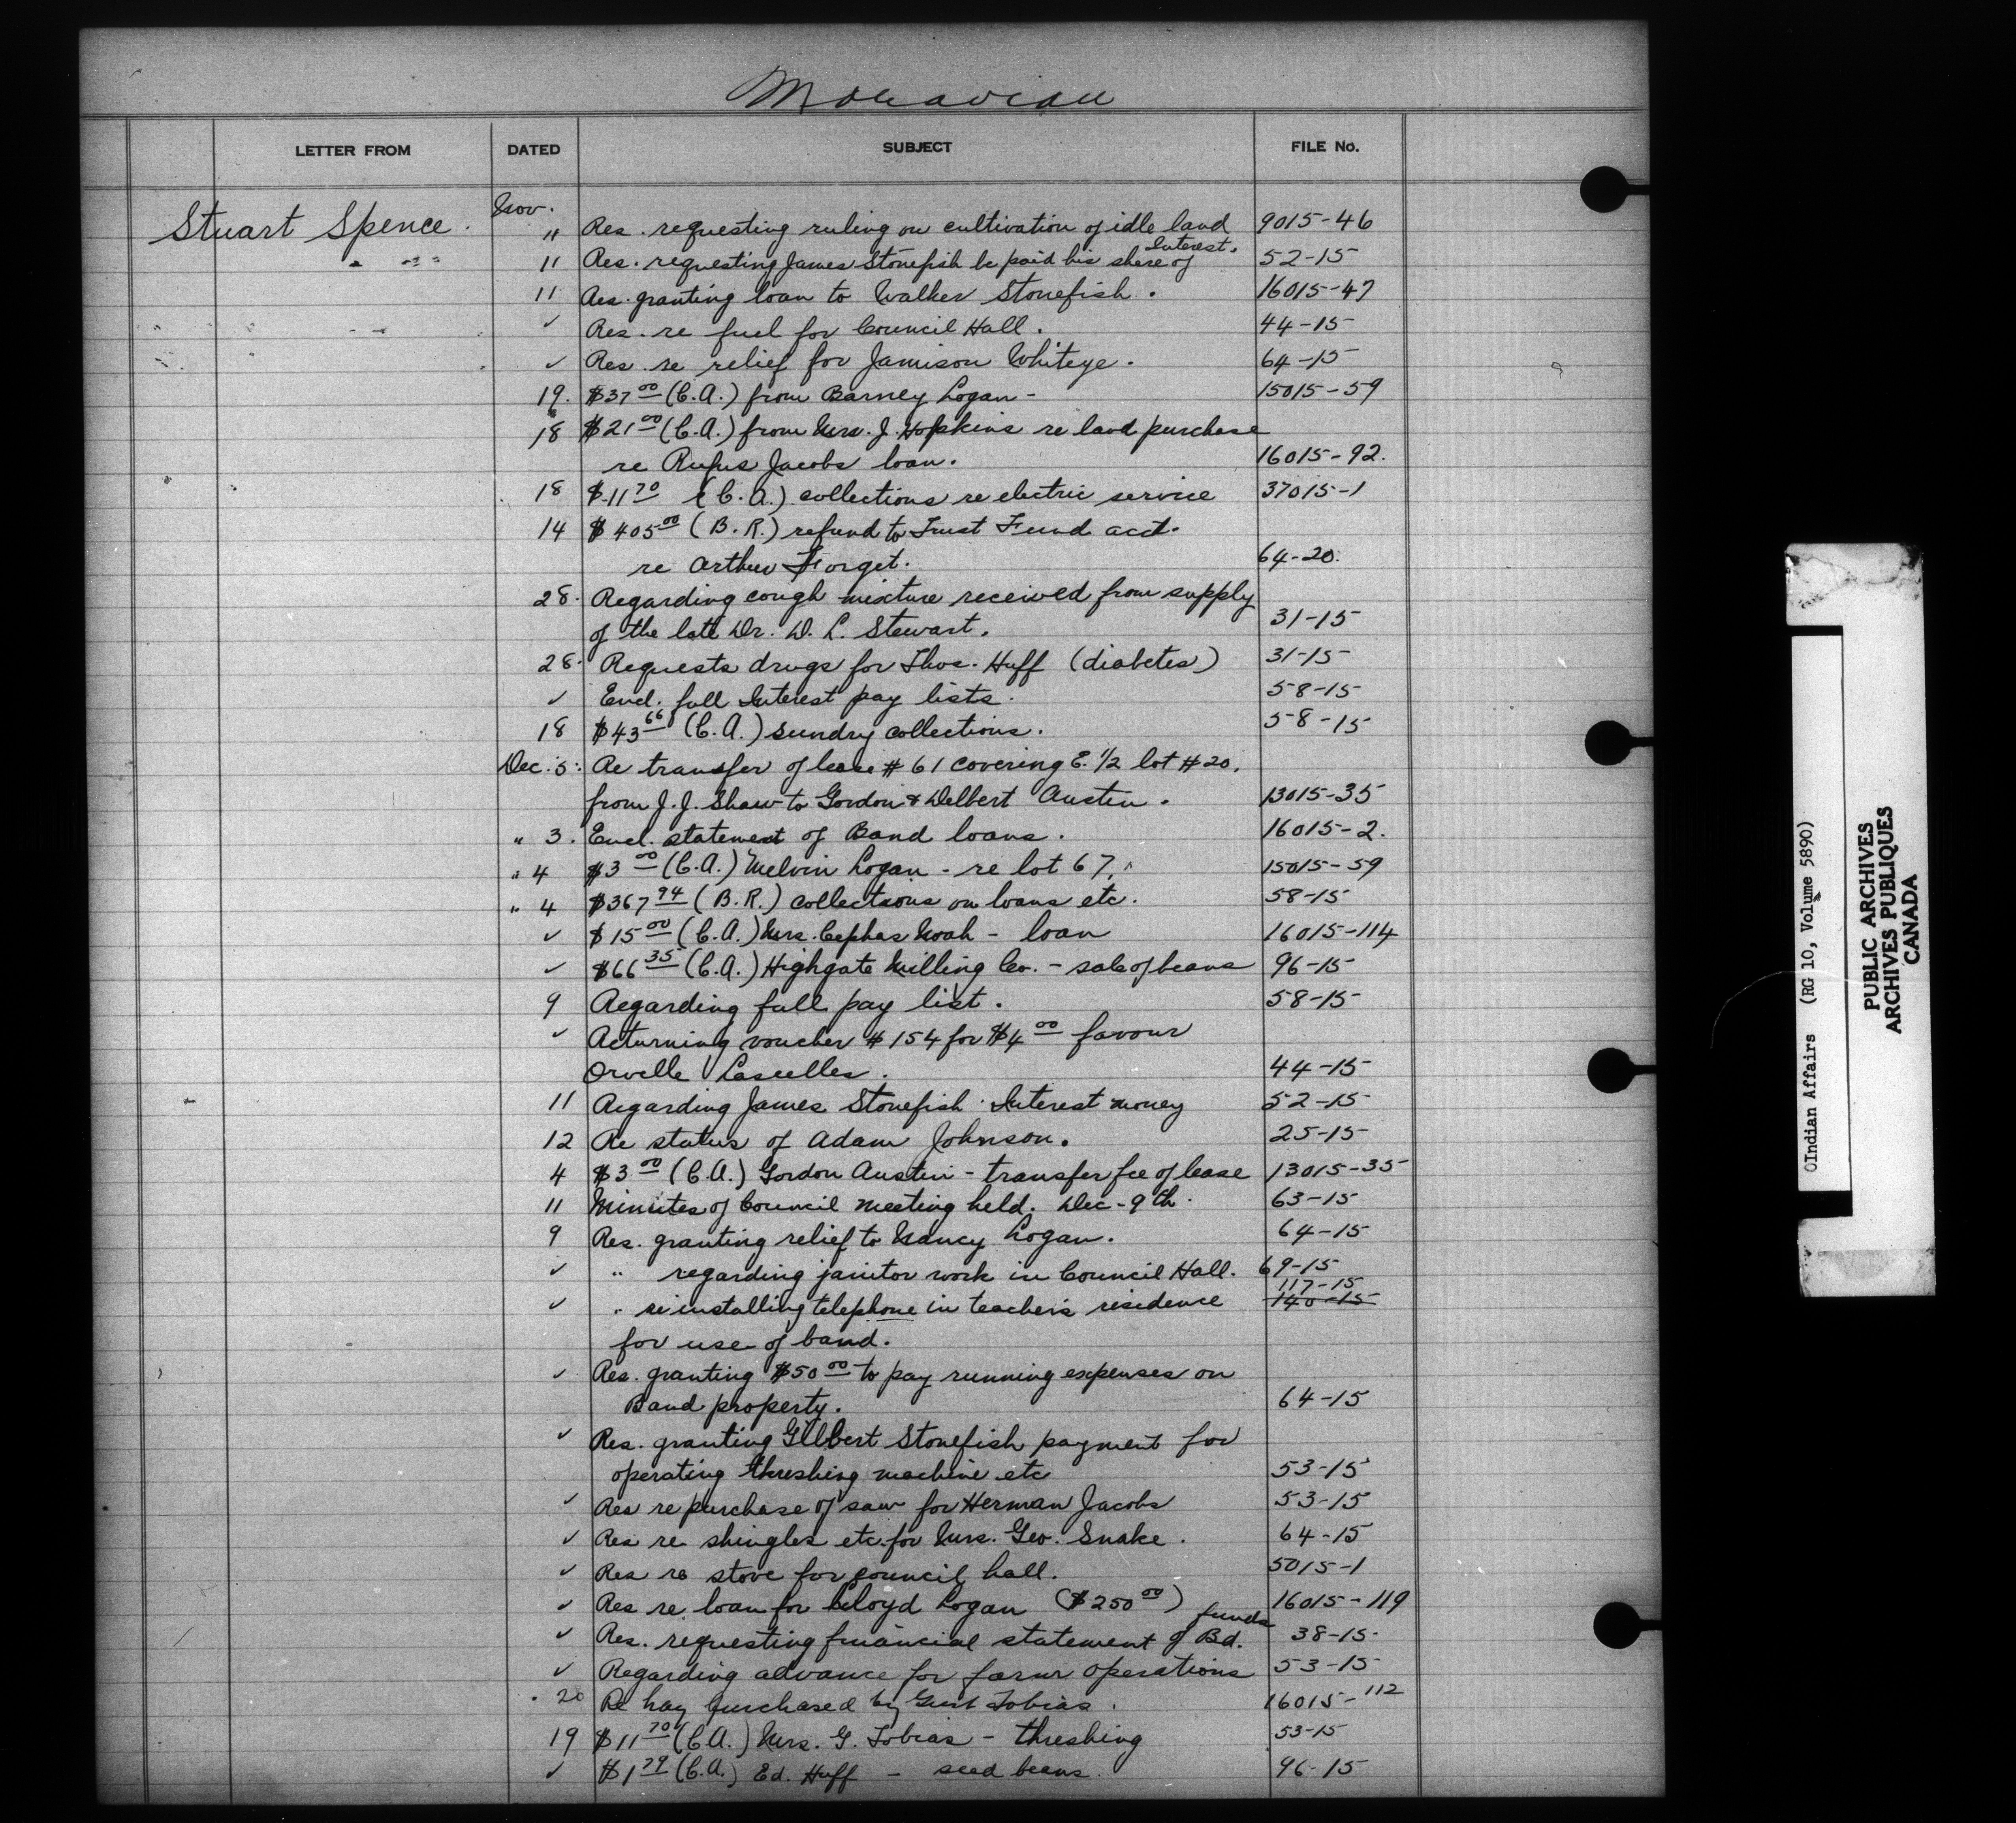 Moravian
LETTER FROM DATED SUBJECT FILE No.
Nov.
Stuart Spence. " Res. requesting ruling on cultivation of idle land 9015-46
11 Res. requesting James Stonefish be paid his share of Interest. 52-15
11 Res. granting loan to Walker Stonefish. 16015-47
✓ Res. re fuel for Council Hall. 44-15
✓ Res. re relief for Jamison Whiteye. 64-15
19. $37 00 (C.A.) from Barney Logan - 15015-59
18 $21 00 (C.A.) from Mrs. J. Hopkins re land purchase
re Rufus Jacobs loan. 16015-92.
18 $11 70 (C.A.) collections re electric service 37015-1
14 $405 00 (B.R.) refund to Trust Fund acct.
re Arthur Forget. 64-20.
28. Regarding cough mixture received from supply
of the late Dr. D. L. Stewart. 31-15
28. Requests drugs for Thos. Huff (diabetes) 31-15
✓ Encl. fall Interest pay lists. 58-15
18 $43 66 (C.A.) sundry collections. 58-15
Dec. 5. Re transfer of lease #61 covering E. 1/2 lot #20.
from J.J. Shaw to Gordon & Delbert Austin. 13015-35
" 3. Encl. statement of Band loans. 16015-2.
" 4 $3 00 (C.A.) Melvin Logan - re lot 67. 15015-59
" 4 $367 94 (B.R.) collections on loans etc. 58-15
✓ $15 00 (C.A.) Mrs. Cephas Noah - loan 16015-114
✓ $66 35 (C.A.) Highgate Milling Co. - sale of beans 96-15
9 Regarding fall pay list. 58-15
✓ Returning voucher #154 for $4 00 favour
Orvelle Lascelles. 44-15
11 Regarding James Stonefish Interest money 52-15
12 Re status of Adam Johnson. 25-15
4 $3 00 (C.A.) Gordon Austin - transfer fee of lease 13015-35
11 Minutes of Council meeting held. Dec - 9th. 63-15
9 Res. granting relief to Nancy Logan. 64-15
✓ " regarding janitor work in Council Hall. 69-15
117-15
✓ " re installing telephone in teacher's residence 140-15
for use of band.
✓ Res. granting $50 00 to pay running expenses on
Band property. 64-15
✓ Res. granting Gilbert Stonefish payment for
operating threshing machine etc 53-15
✓ Res re purchase of saw for Herman Jacobs 53-15
✓ Res re shingles etc. for Mrs. Geo. Snake. 64-15
✓ Res re stove for council hall. 5015-1
✓ Res re loan for Cloyd Logan ($250 00) 16015-119
✓ Res. requesting financial statement of Bd. funds 38-15
✓ Regarding advance for farm operations 53-15
20 Re hay purchased by Gust Tobias. 16015-112
19 $11 70 (C.A.) Mrs. G. Tobias - threshing 53-15
✓ $1 79 (C.A.) Ed. Huff - seed beans. 96-15
Indian Affairs (RG 10, Volume 5890)
PUBLIC ARCHIVES
ARCHIVES PUBLIQUES
CANADA